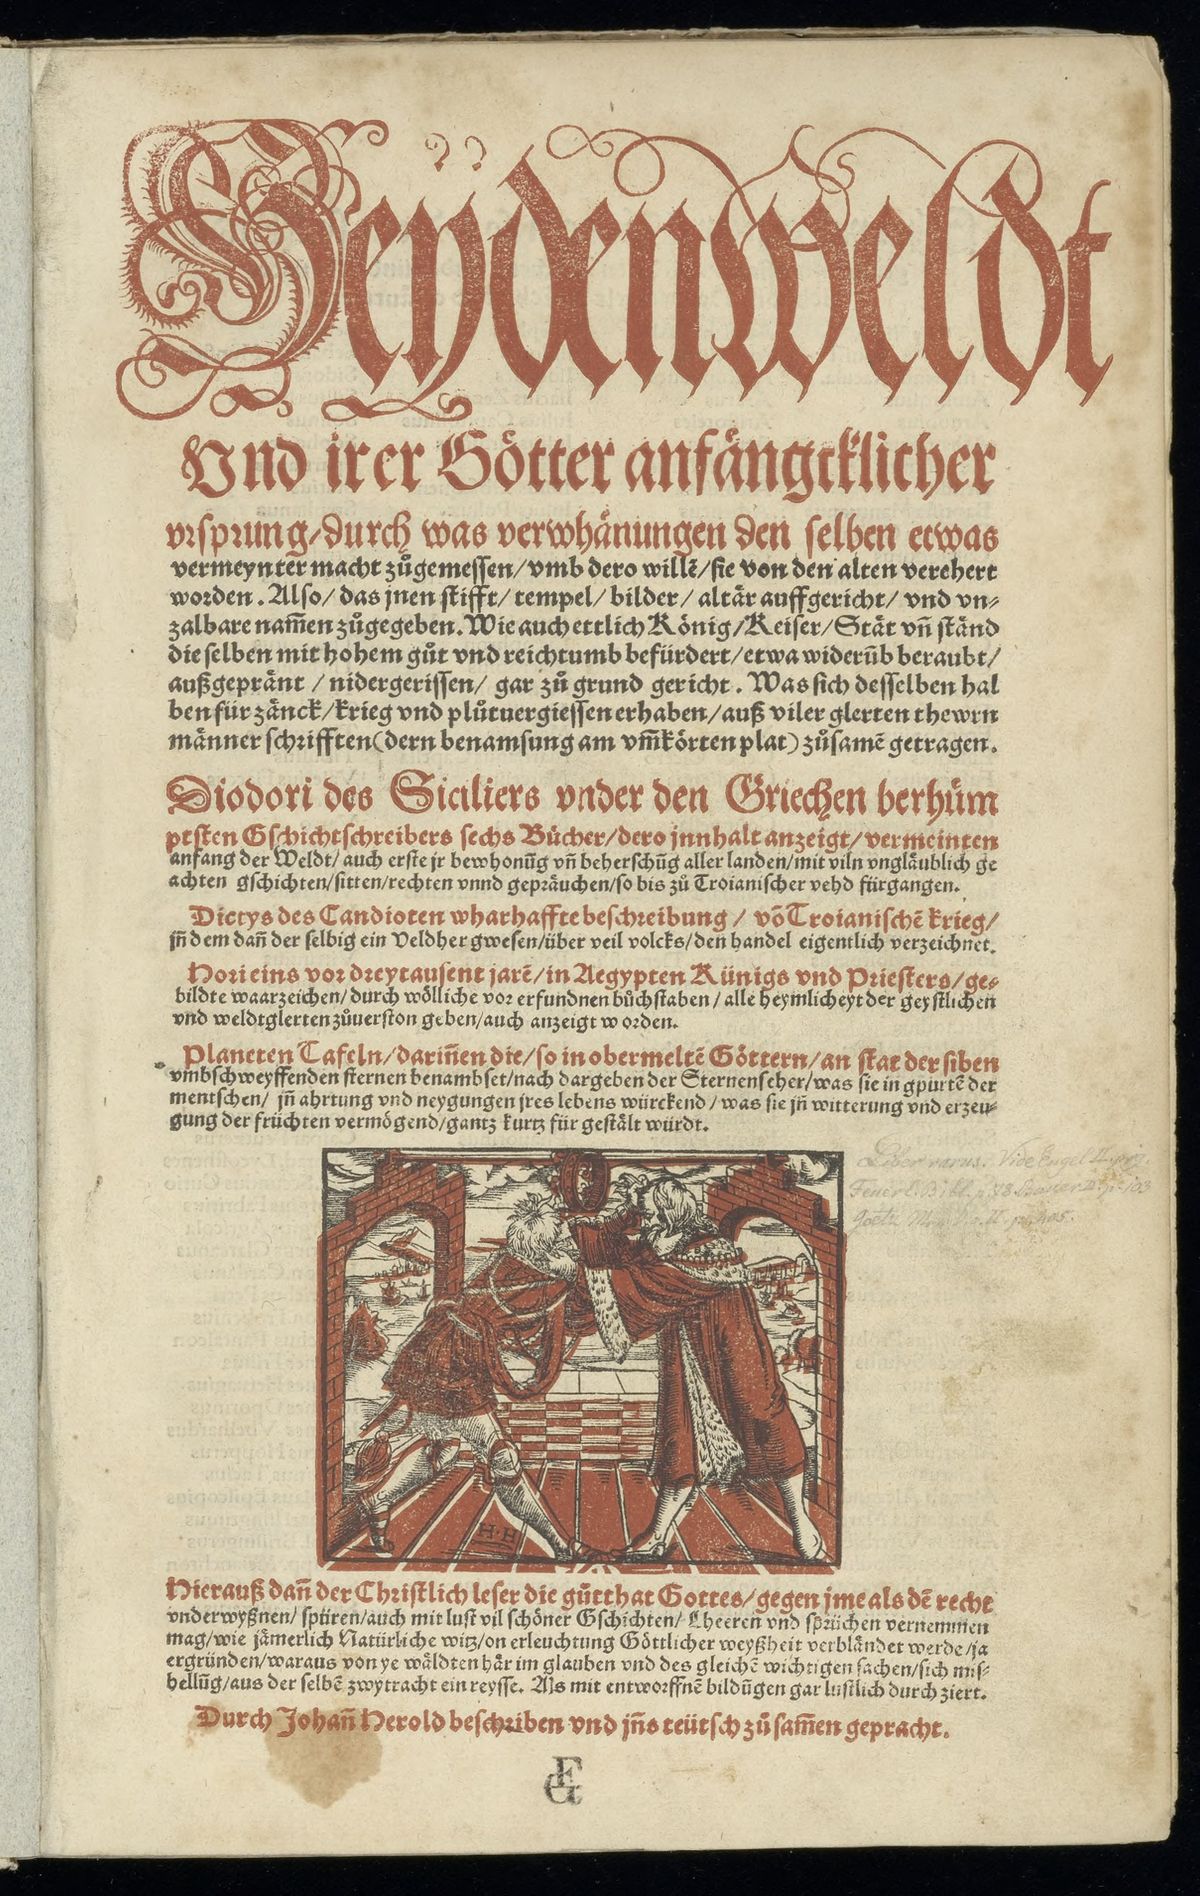 Heydenweldt
Vnd irer Götter anfängcklicher
vrsprung/durch was verwhänungen den selben etwas
vermeynter macht zůgemessen/vmb dero willẽ/sie von den alten verehert
worden. Also/ das jnen stifft/ tempel/ bilder/ altär auffgericht/ vnd vn⸗
zalbare nam̃en zůgegeben. Wie auch ettlich König/Keiser/Stät vñ ständ
die selben mit hohem gůt vnd reichtumb befürdert/etwa widerũb beraubt/
außgepränt / nidergerissen/ gar zů grund gericht. Was sich desselben hal
ben für zänck/krieg vnd plůtuergiessen erhaben/auß viler glerten thewrn
männer schrifften(dern benamsung am vm̃körten plat)zůsamẽ getragen.
Diodori des Siciliers vnder den Griechen berhüm
ptsten Gschichtschreibers sechs Bücher/dero jnnhalt anzeigt/vermeinten
anfang der Weldt/auch erste jr bewhonũg vñ beherschũg aller landen/mit viln vngläublich ge
achten gschichten/sitten/rechten vnnd gepräuchen/so bis zů Troianischer vehd fürgangen.
Dictys des Candioten wharhaffte beschreibung / võ Troianischẽ krieg/
jñ dem dañ der selbig ein Veldher gwesen/über veil volcks/den handel eigentlich verzeichnet.
Hori eins vor dreytausent jarẽ/in Aegypten Künigs vnd Priesters/ge⸗
bildte waarzeichen/durch wölliche vor erfundnen bůchstaben/alle heymlicheyt der geystlichen
vnd weldtglerten zůuerston geben/auch anzeigt worden.
Planeten Tafeln/dariñen die/so in obermeltẽ Göttern/an stat der siben
vmbschweyffenden sternen benambset/nach dargeben der Sternenseher/was sie in gpurtẽ der
mentschen/ jñ ahrtung vnd neygungen jres lebens würckend/was sie jñ witterung vnd erzeu⸗
gung der früchten vermögend/gantz kurtz für gestält würdt.
Liber rarus. Vide Engel
H·H
Hierauß dañ der Christlich leser die gůtthat Gottes/gegen jme als dẽ recht
vnderwyßnen/ spüren/auch mit lust vil schöner Gschichten/ Lheeren vnd sprüchen vernemmen
mag/wie jämerlich Natürliche witz/on erleuchtung Göttlicher weyßheit verbländet werde/ja
ergründen/waraus von ye wäldten här im glauben vnd des gleichẽ wichtigen sachen/sich mis⸗
hellũg/aus der selbẽ zwytracht ein reysse. Als mit entworffnẽ bildũgen gar lustlich durch ziert.
Durch Johañ Herold beschriben vnd jñs teütsch zů sam̃en gepracht.